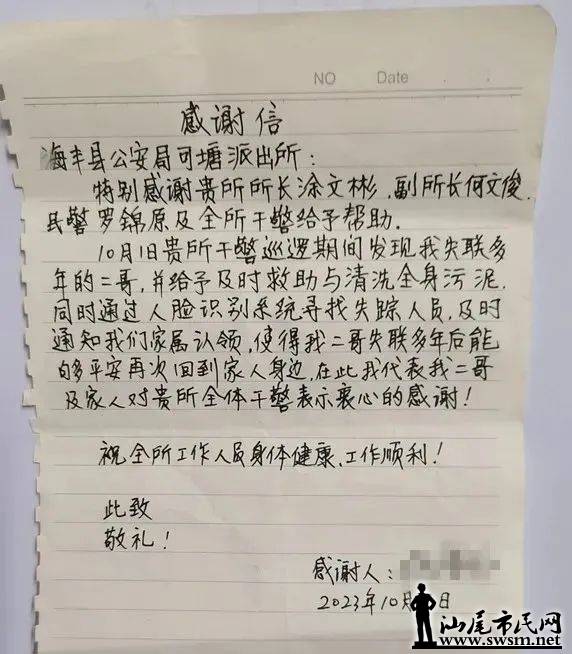 NO Date
感谢信
海丰县公安局可塘派出所:
特别感谢贵所所长涂文彬、副所长何文俊、
民警罗锦原及全所干警给予帮助.
10月1日贵所干警巡逻期间发现我失联多
年的二哥,并给予及时救助与清洗全身污泥.
同时通过人脸识别系统寻找失踪人员,及时
通知我们家属认领,使得我二哥失联多年后能
够平安再次回到家人身边,在此我代表我二哥
及家人对贵所全体干警表示衷心的感谢!
祝全所工作人员身体健康、工作顺利!
此致
敬礼!
感谢人:
2023年10月 日
汕尾市民网
www.swsm.net